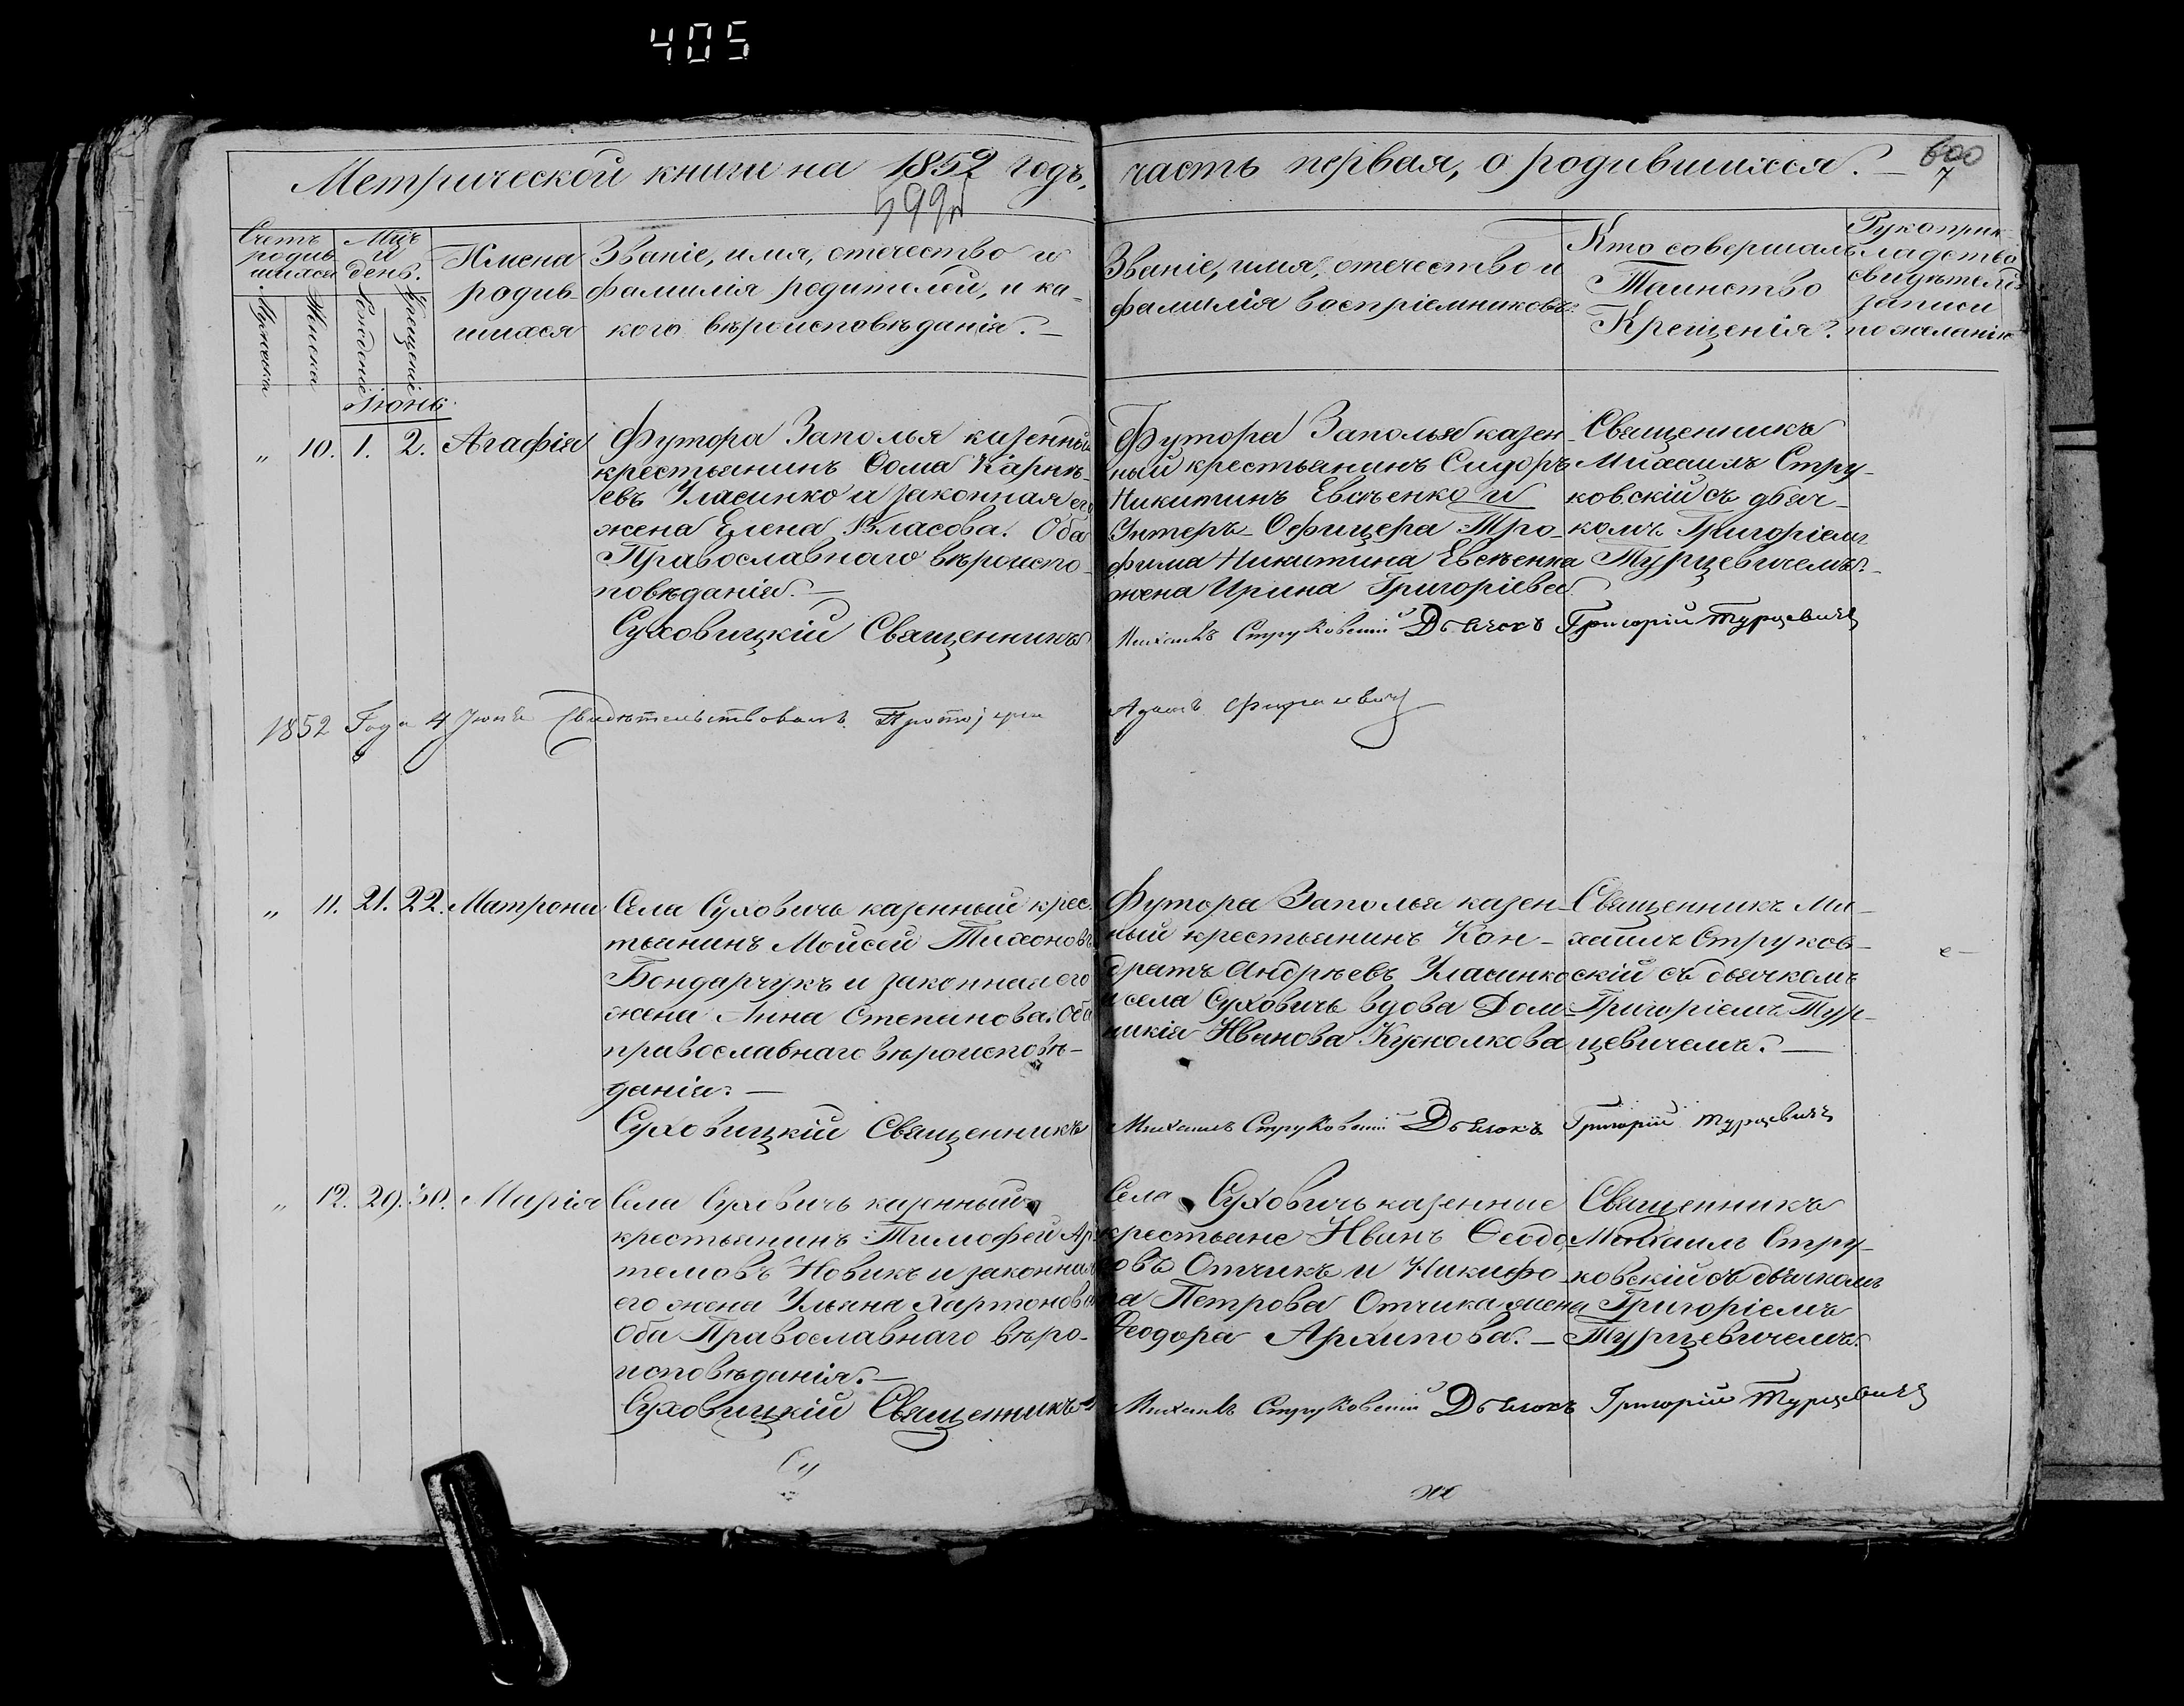 405
Метрической книги на 1852 годъ,
599
часть первая, о родившихся.
600
7
Счетъ родившихся
Мцъ и день.
Имена родившихся
Званіе, имя, отечество и
фамилія родителей, и ка-
кого вѣроисповѣданія.
Мужеска
Женска
Рожденіе
Крещеніе
Званіе, имя, отечество и
фамилія воспріемниковъ.
Кто совершалъ
Таинство
Крещенія?
Рукоприк-
ладство
свидѣтелей
записи
по желанію
Июнь
„ 10. 1. 2. Агафія
Футора Заполья казенный
крестьянинъ Ѳома Карнѣ-
евъ Уласинко и законная его
жена Елена Власова. Оба
Православнаго вѣроиспо-
повѣданія.
Суховицкій Священникъ
Футора Заполья казен-
ный крестьянинъ Сидоръ
Никитинъ Евсѣенко и
Унтеръ-Офицера Тро-
фима Никитина Евсѣенка
жена Ирина Григоріева
Священникъ
Михаилъ Стру-
ковскій съ дьяч-
комъ Григоріемъ
Турцевичемъ.
Михаилъ Струковскій Дьячокъ Григорій Турцевичъ
1852 Года 4 Июня Свидѣтельствовалъ Протоіерей
Адамъ
„ 11. 21. 22. Матрона
Села Суховичь казенный крес-
тьянинъ Моисей Тихоновъ
Бондарчукъ и законная его
жена Анна Степанова. Оба
православнаго вѣроисповѣ-
данія.
Суховицкій Священникъ
Футора Заполья казен-
ный крестьянинъ Кон-
дратъ Андрѣевъ Уласинко
и села Суховичь вдова Дом-
никія Иванова Кужолкова
Священникъ Ми-
хаилъ Струков-
скій съ дьячкомъ
Григоріемъ Тур-
цевичемъ.
Михаилъ Струковскій Дьячокъ Григорій Турцевичъ
„ 12. 29. 30. Марія
Села Суховичь казенный
крестьянинъ Тимофей Ар-
темовъ Новикъ и законная
его жена Ульяна Хартонова
Оба Православнаго вѣро-
исповѣданія.
Суховицкій Священникъ
Села Суховичь казенные
крестьяне Иванъ Ѳеодо-
овъ Отчикъ и Никифо-
ра Петрова Отчика жена
Ѳеодора Архипова.
Священникъ
Михаилъ Стру-
ковскій съ дьячкомъ
Григоріемъ
Турцевичемъ.
Михаилъ Струковскій Дьячокъ Григорій Турцевичъ
Су